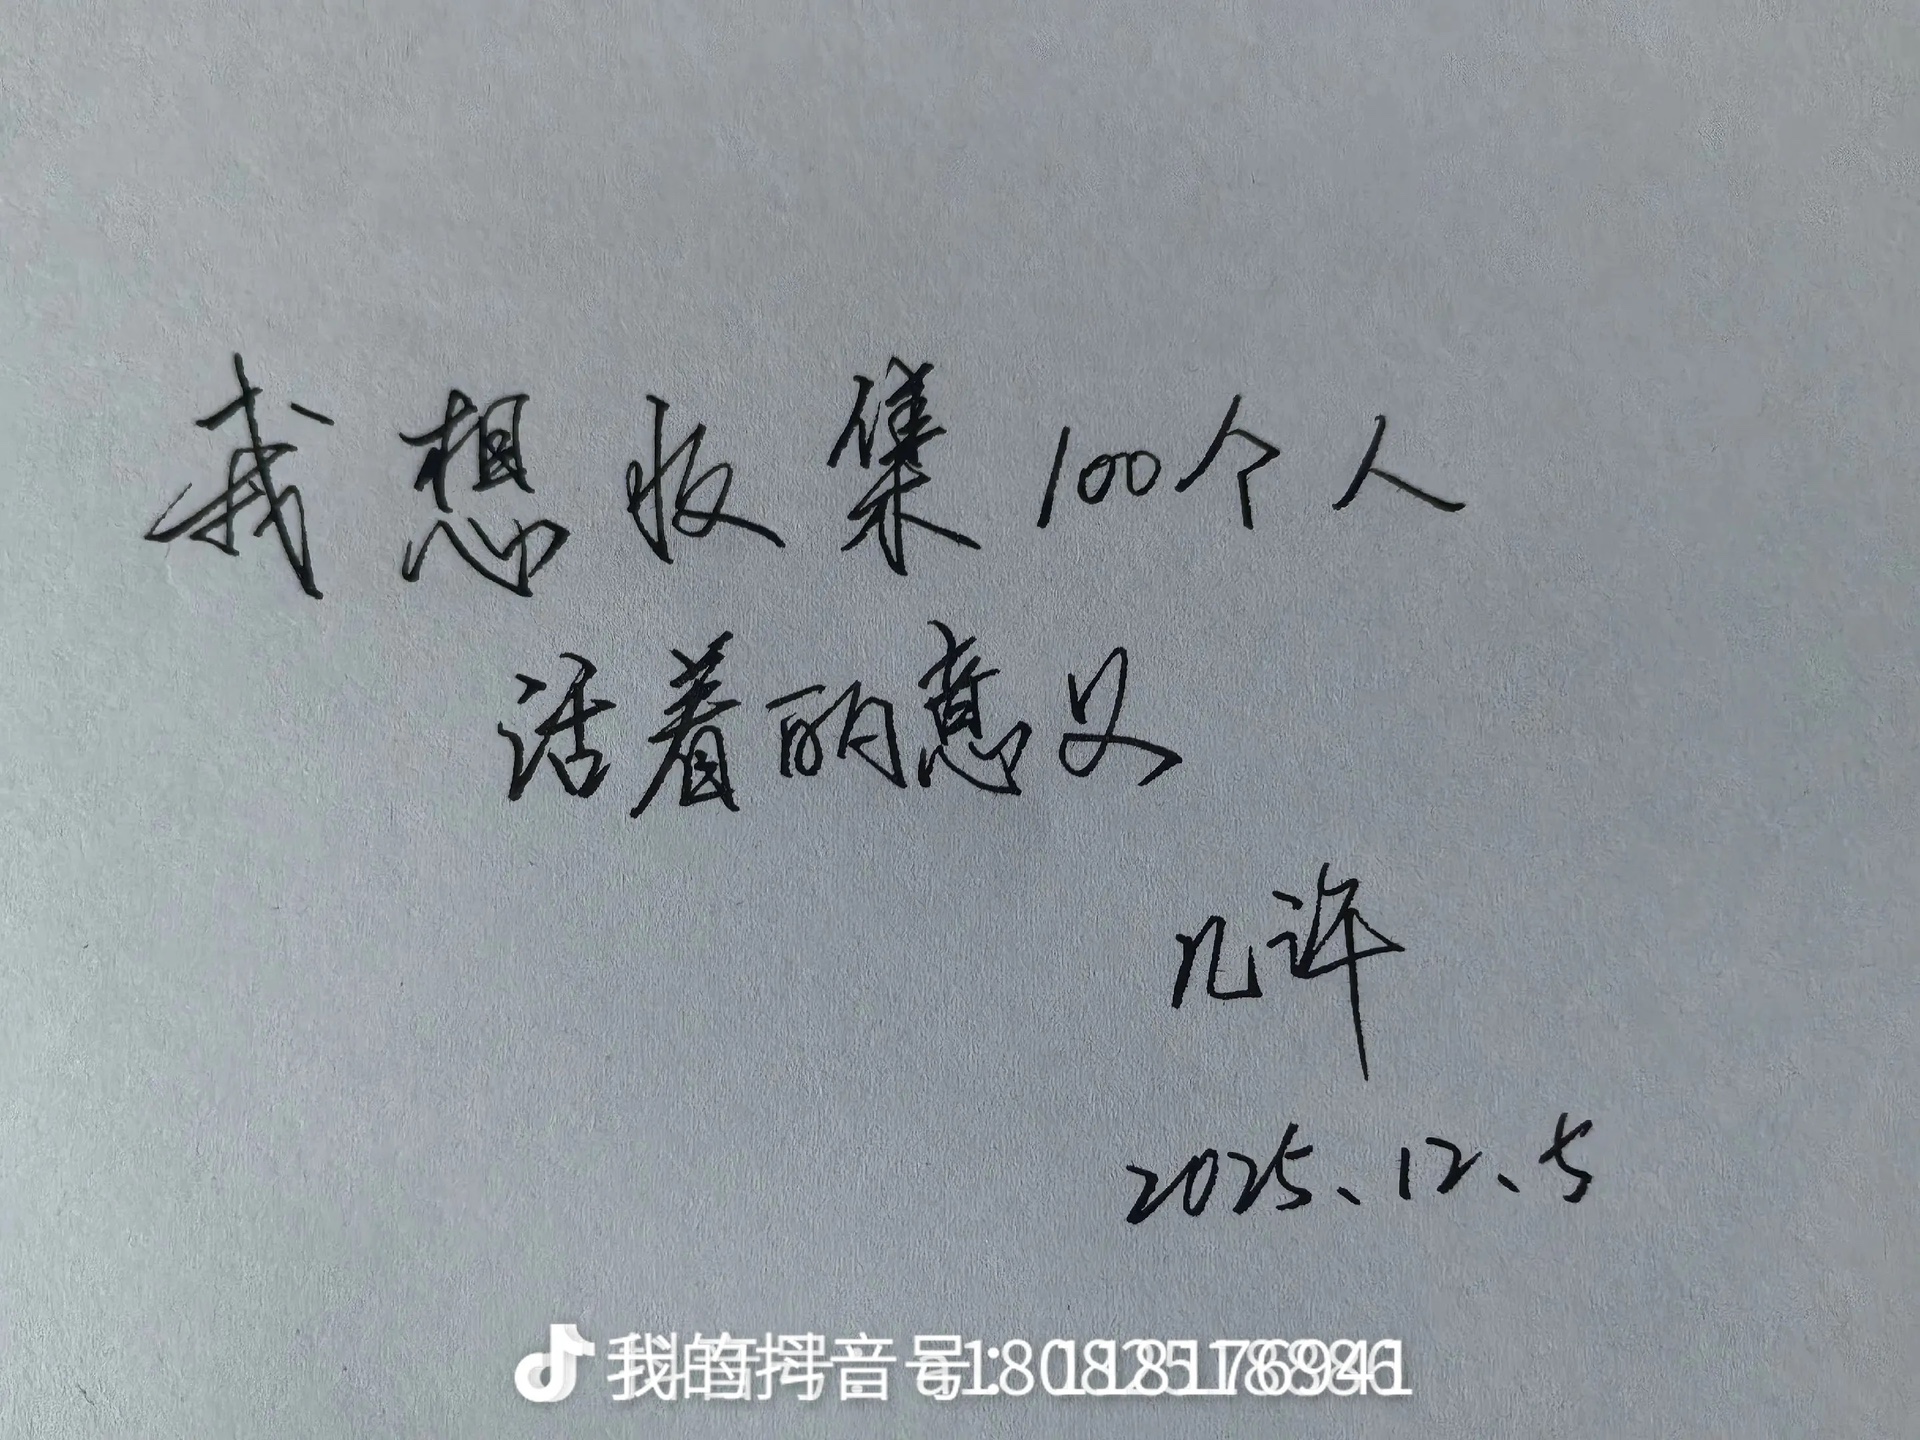 我想收集100个人
活着的意义
几许
2025、12、5